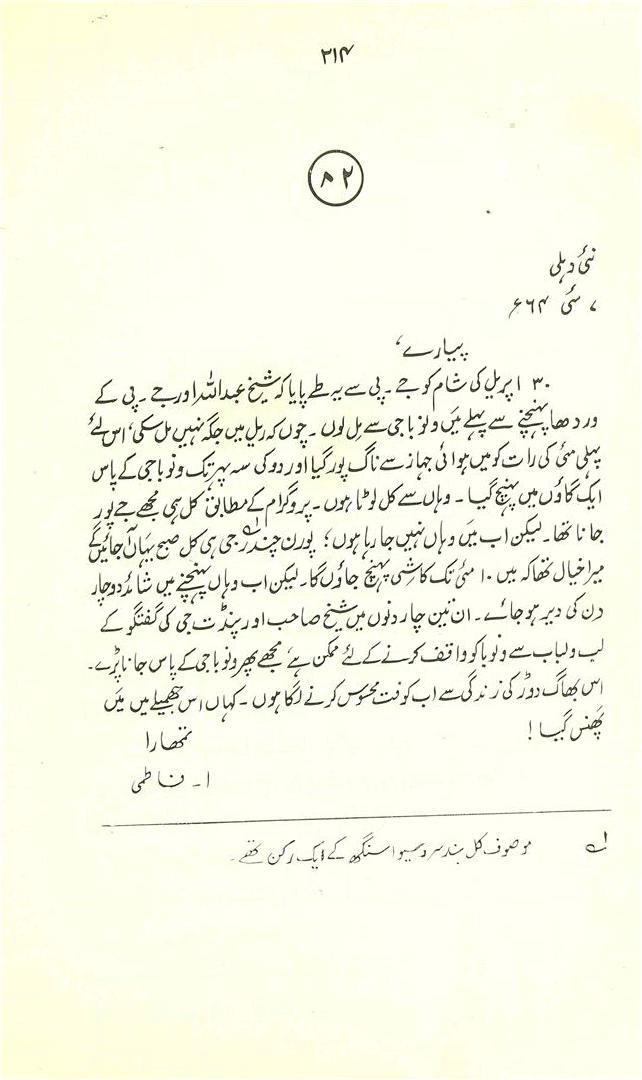 ۲۱۴
۸۲
نئی دہلی
۷ مئی ۶۶۴
پیارے،
۳۰ اپریل کی شام کو جے۔ پی سے یہ طے پایا کہ شیخ عبداللہ اور جے۔ پی کے
وردھا پہنچنے سے پہلے میں ونوبا جی سے مل لوں۔ چوں کہ ریل میں جگہ نہیں مل سکی، اس لئے
پہلی مئی کی رات کو میں ہوائی جہاز سے ناگ پور گیا اور دو کی سہ پہر تک ونوبا جی کے پاس
ایک گاؤں میں پہنچ گیا۔ وہاں سے کل لوٹا ہوں۔ پروگرام کے مطابق کل ہی مجھے جے پور
جانا تھا۔ لیکن اب میں وہاں نہیں جا رہا ہوں؛ پورن چندر جی ہی کل صبح یہاں آ جائیں گے
میرا خیال تھا کہ میں ۱۰ مئی تک کاشی پہنچ جاؤں گا۔ لیکن اب وہاں پہنچنے میں شائد دو چار
دن کی دیر ہو جائے۔ ان تین چار دنوں میں شیخ صاحب اور پنڈت جی کی گفتگو کے
لب و لباب سے ونوبا کو واقف کرنے کے لئے ممکن ہے، مجھے پھر ونوبا جی کے پاس جانا پڑے۔
اس بھاگ دوڑ کی زندگی سے اب کوفت محسوس کرنے لگا ہوں۔ کہاں اس جھمیلے میں میں
پھنس گیا!
تمھارا
ا۔ فاطمی
۱؎ موصوف کل ہند سرو سیوا سنگھ کے ایک رکن تھے۔